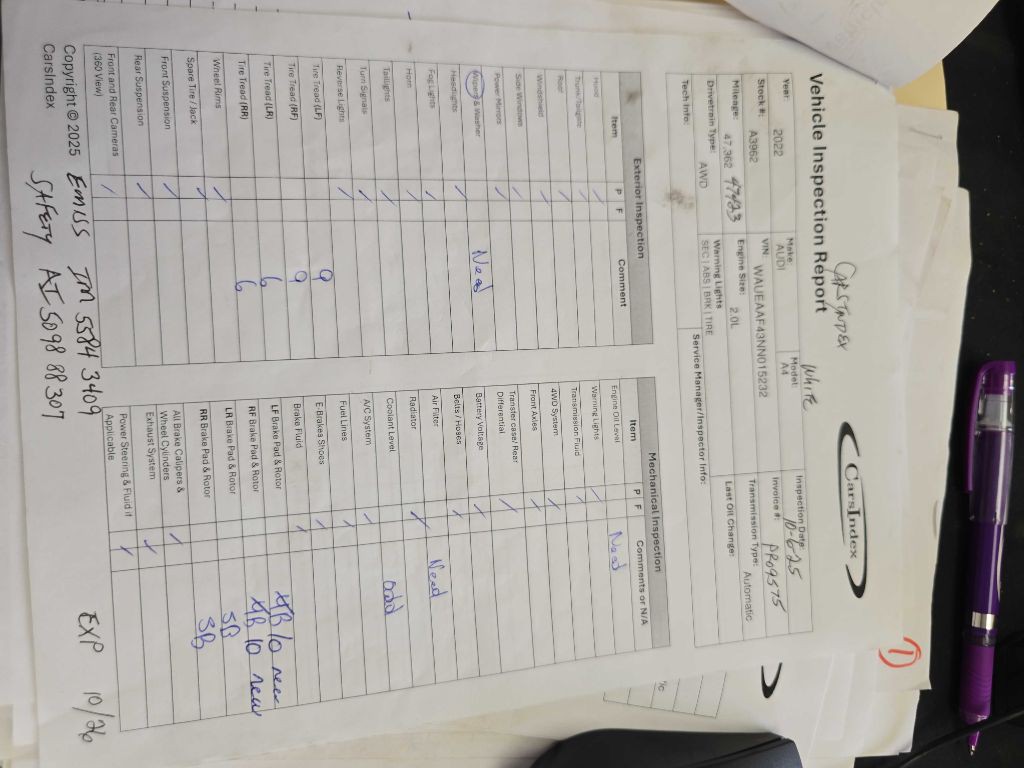 CARSINDEX
WHITE
CarsIndex
1
Vehicle Inspection Report
Year: 2022
Make: AUDI
Model: A4
Inspection Date: 10-6-25
Stock #: A3962
VIN: WAUEAAF43NN015232
Invoice #: PRO9575
Mileage: 47,362 47423
Engine Size: 2.0L
Transmission Type: Automatic
Drivetrain Type: AWD
Warning Lights
SEC | ABS | BRK | TIRE
Last Oil Change:
Tech Info:
Service Manager/Inspector Info:
Exterior Inspection
Item P F Comment
Hood ✓
Trunk/Tailgate ✓
Roof ✓
Windshield ✓
Side Windows ✓
Power Mirrors ✓
Wipers & Washer Need
Headlights ✓
Fog Lights ✓
Horn ✓
Taillights ✓
Turn Signals ✓
Reverse Lights ✓
Tire Tread (LF) 9
Tire Tread (RF) 9
Tire Tread (LR) 6
Tire Tread (RR) 6
Wheel Rims ✓
Spare Tire / Jack ✓
Front Suspension ✓
Rear Suspension ✓
Front and Rear Cameras
(360 View) ✓
Mechanical Inspection
Item P F Comments or N/A
Engine Oil Level Need
Warning Lights ✓
Transmission Fluid ✓
4WD System ✓
Front Axles ✓
Transfer case/ Rear
Differential ✓
Battery Voltage ✓
Belts / Hoses ✓
Air Filter Need
Radiator ✓
Coolant Level add
A/C System ✓
Fuel Lines ✓
E Brakes Shoes ✓
Brake Fluid ✓
LF Brake Pad & Rotor 10 new
RF Brake Pad & Rotor 10 new
LR Brake Pad & Rotor 5B
RR Brake Pad & Rotor 5B
All Brake Calipers &
Wheel Cylinders ✓
Exhaust System ✓
Power Steering & Fluid if
Applicable ✓
Copyright © 2025
CarsIndex
EMISS IM 5584 3409
SAFETY AI 5098 88307
EXP 10/26